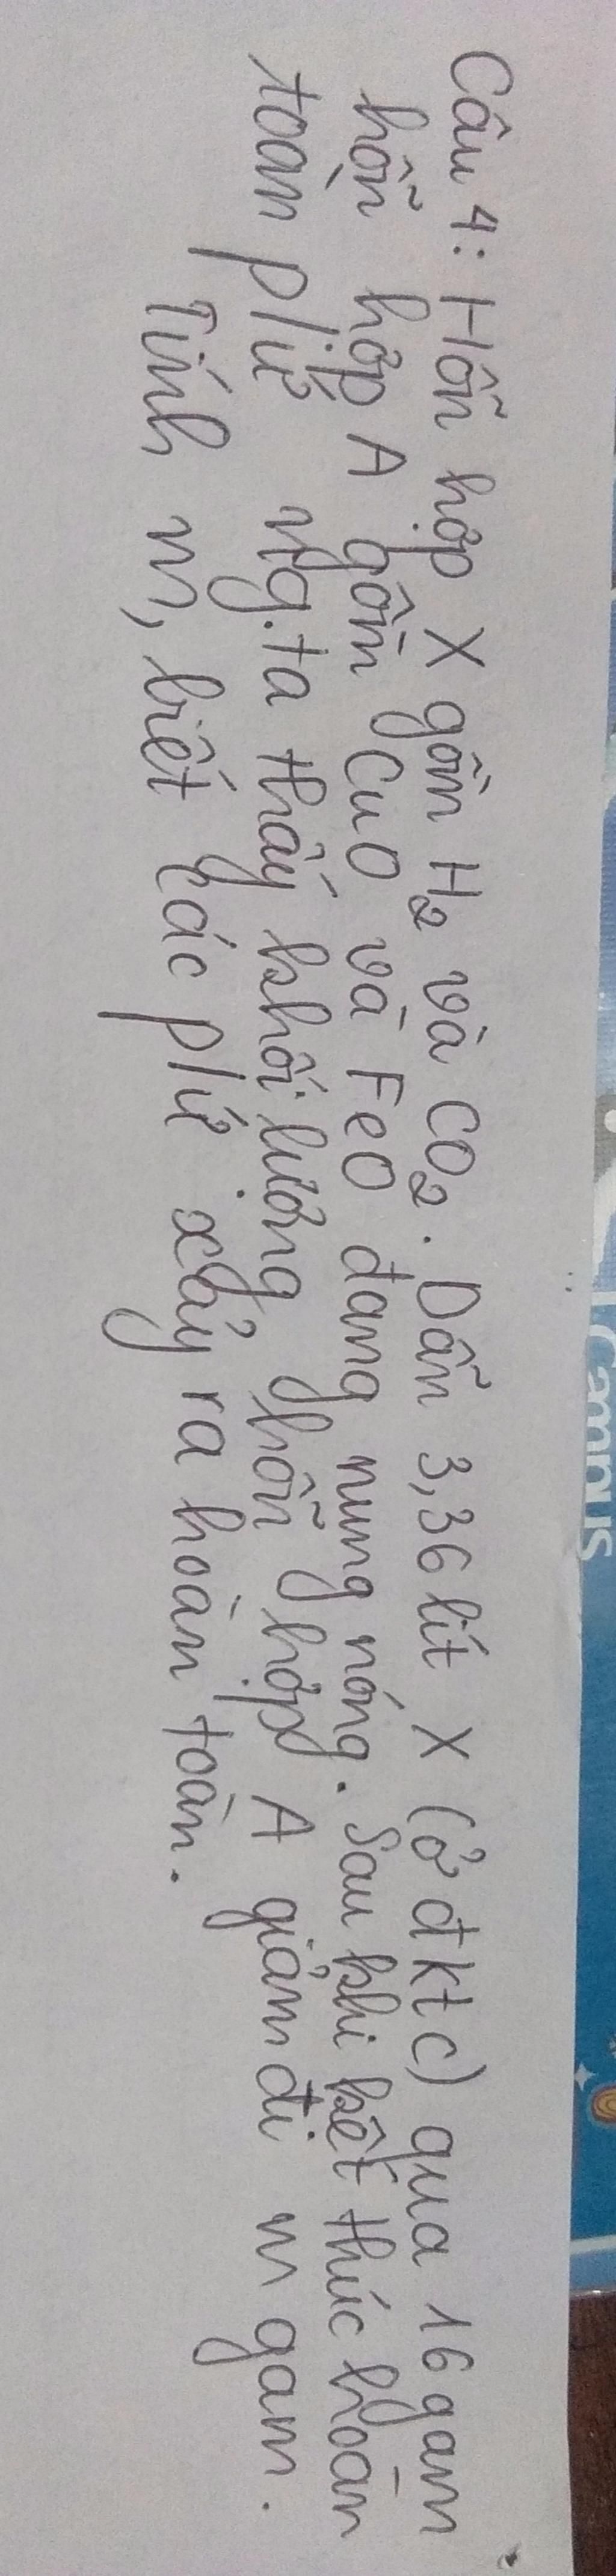 Câu 4: Hỗn hợp X gồm H2 và CO2. Dẫn 3,36 lít X (ở đktc) qua 16 gam
hỗn hợp A gồm CuO và FeO đang nung nóng. Sau khi kết thúc hoàn
toàn p/ứ ng.ta thấy khối lượng hỗn hợp A giảm đi m gam.
Tính m, biết các p/ứ xảy ra hoàn toàn.
Campus